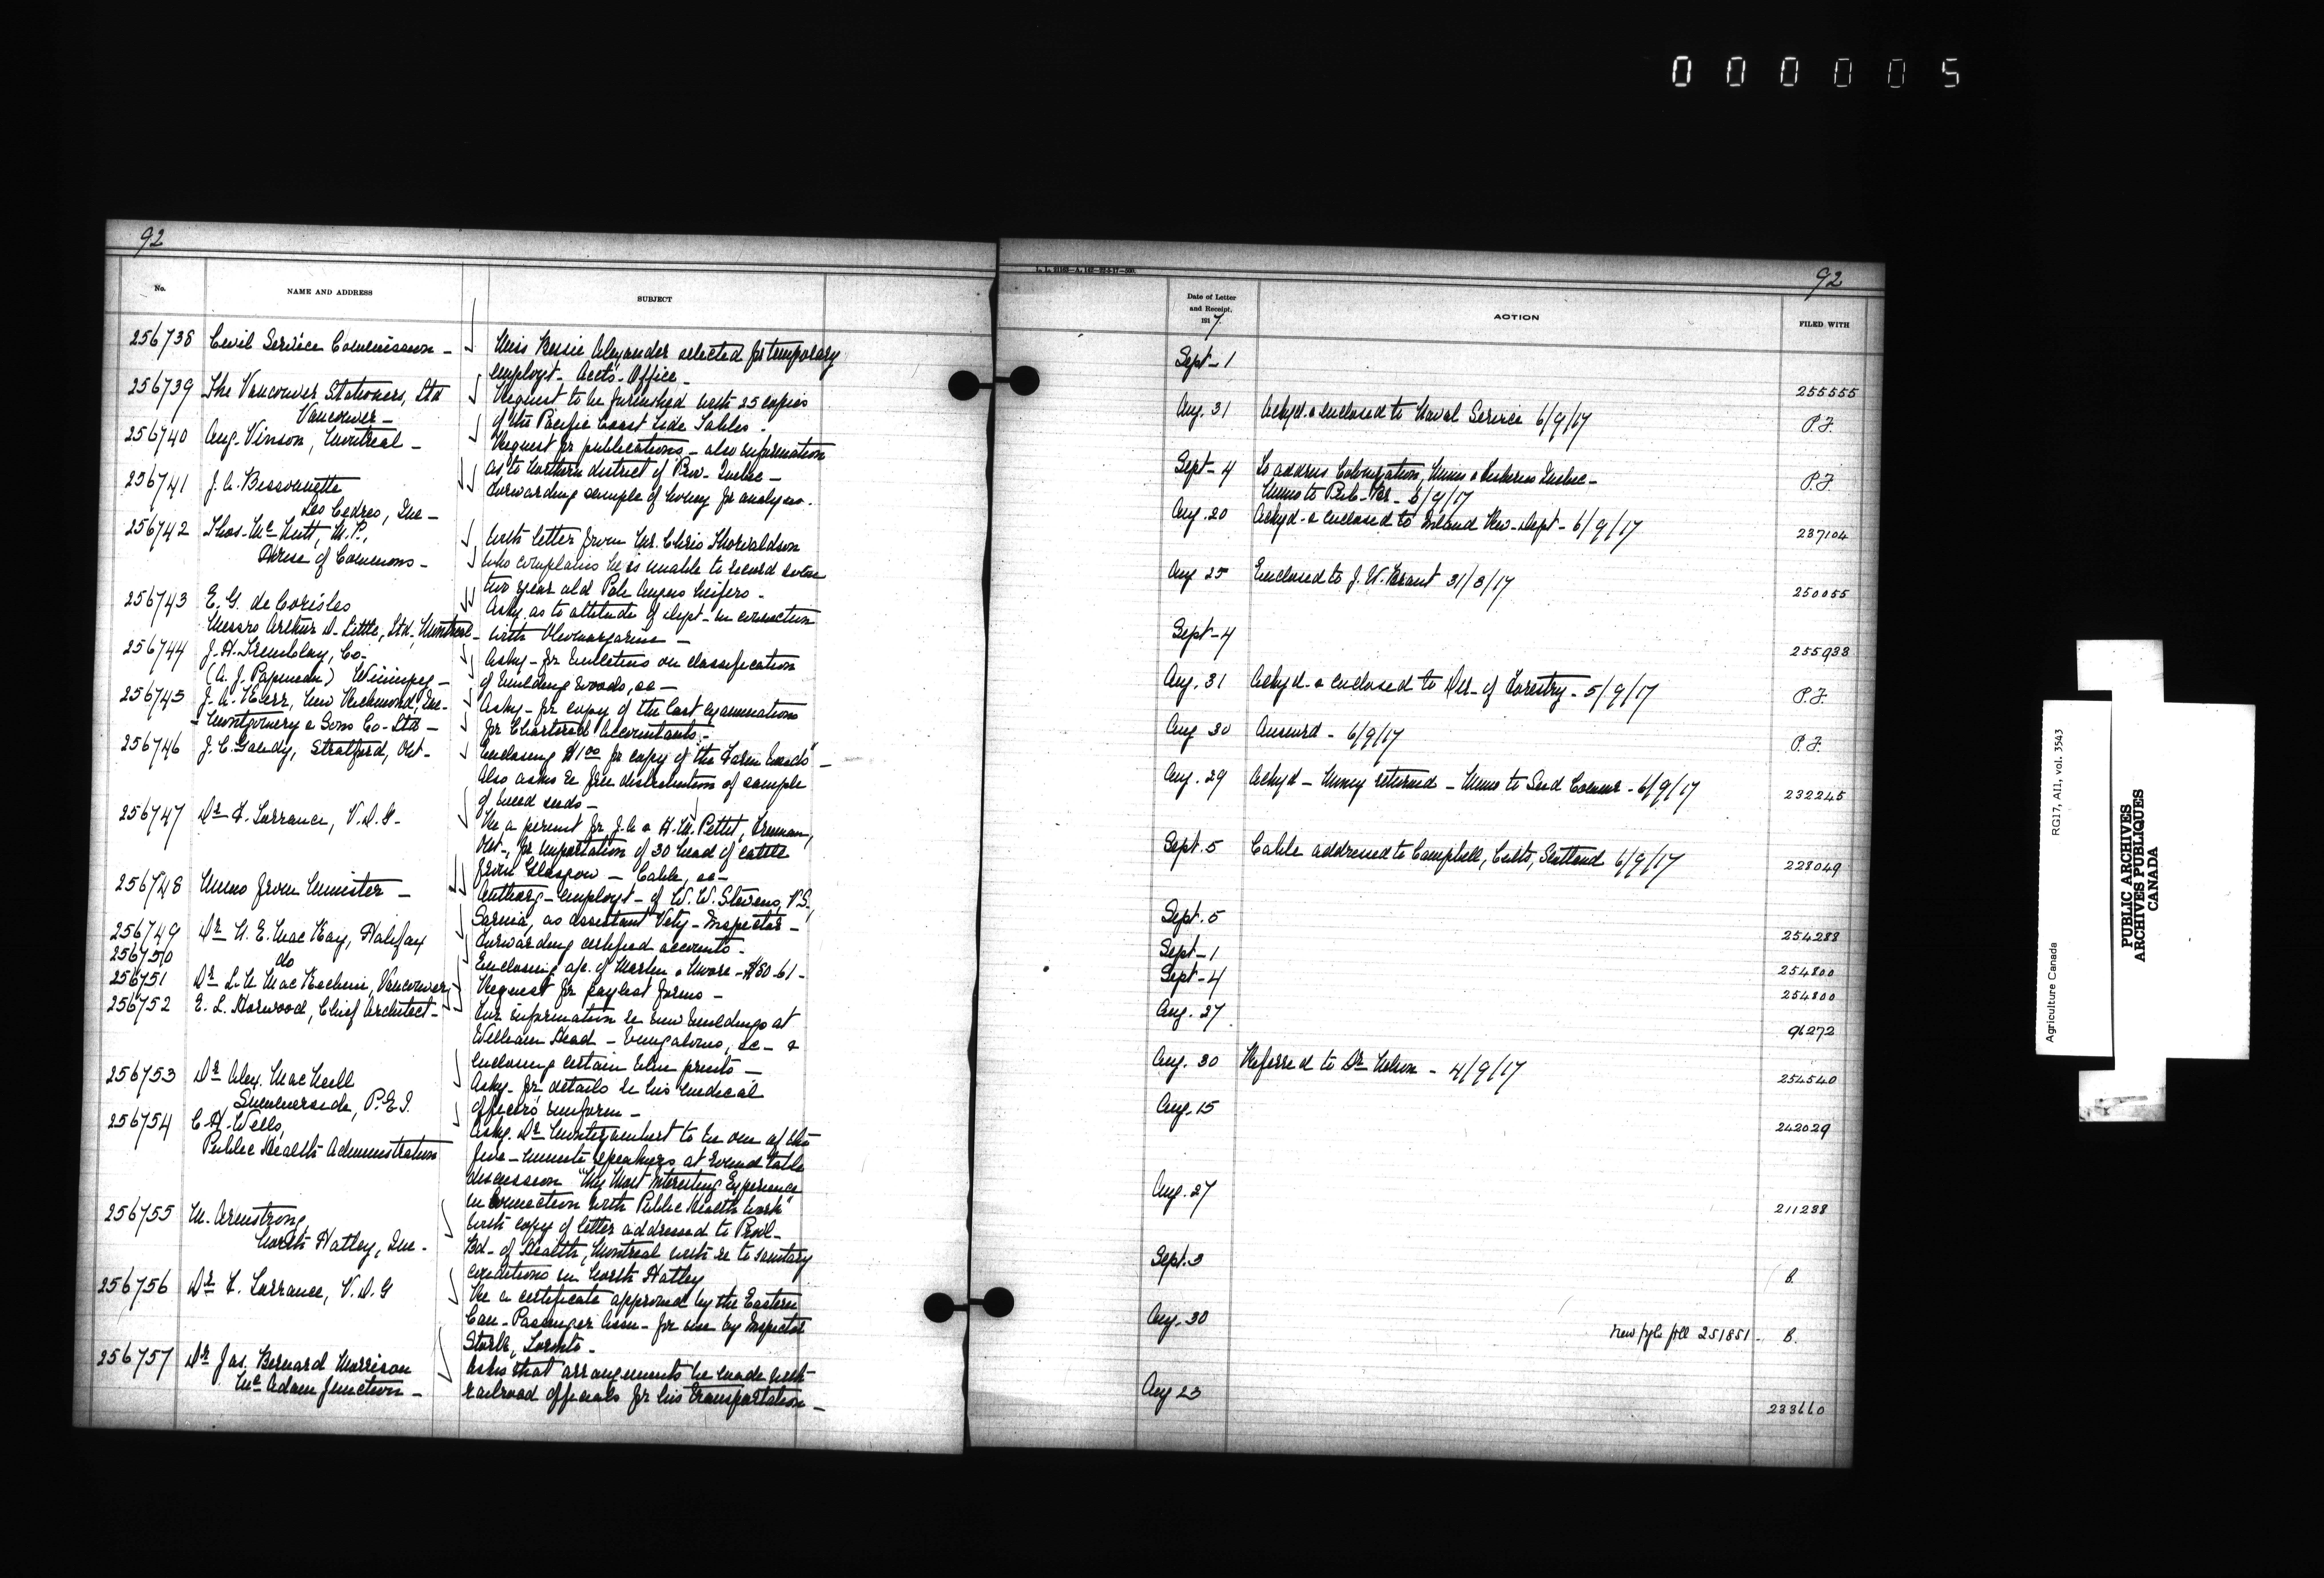 0 0 0 0 0 5
92
No.
NAME AND ADDRESS
SUBJECT
256738 Civil Service Commission - Miss Bessie Alexander selected for temporary
employt - Accts - Office -
256739 The Vancouver Stationers, Ltd Request to be furnished with 25 copies
Vancouver - of the Pacific Coast Tide Tables -
256740 Aug. Vinson, Montreal - Request for publications - also information
as to Northern district of Prov - Quebec -
256741 J. A. Bissonnette Forwarding sample of honey for analysis.
Les Cedres, Que -
256742 Thos. McNutt, M.P., With letter from Mr. Chris Thorvaldson
House of Commons - who complains he is unable to record some
two year old Pole Angus heifers -
256743 E. G. de Coriolis Askg. as to attitude of Dept - in connection
Messrs Arthur D. Little, Ltd, Montreal - with Oleomargarine -
256744 J. H. Tremblay, Co - Askg - for bulletins on classification
(A. J. Papineau) Winnipeg - of building woods, &c -
256745 J. A. Kerr, New Richmond, Que - Askg - for copy of the last examinations
- Montgomery & Sons Co - Ltd - for Chartered Accountants -
256746 J. C. Gandy, Stratford, Ont - Enclosing $1.00 for copy of the "Farm Weeds" -
Also asks re free distribution of sample
of weed seeds -
256747 Dr F. Torrance, V.D.G. Re a permit for J. A & H. M. Pettit, Freeman,
Ont -, for importation of 30 head of cattle
from Glasgow - Cable, &c -
256748 Memo from Minister - Authorg - employt - of W. W. Stevens, V.S.,
Sarnia, as assistant Vety - Inspector -
256749 Dr N. E. MacKay, Halifax Forwarding certified accounts -
256750 do Enclosing a/c. of Martin & Moore - $80.61 -
256751 Dr L. N. MacKechnie, Vancouver Request for paylist forms -
256752 E. L. Horwood, Chief Architect - Fur information re new buildings at
William Head - bungalows, &c - &
enclosing certain blue prints -
256753 Dr Alex. MacNeill Askg - for details re his medical
Summerside, P.E.I. officers' uniform -
256754 C. H. Wells, Askg. Dr Montizambert to be one of the
Public Health Administration five - minute speakers at round table
discussion "My Most Interesting Experience
in connection with Public Health Work"
256755 M. Armstrong With copy of letter addressed to Provl -
North Hatley, Que - Bd - of Health, Montreal with re to sanitary
conditions in North Hatley
256756 Dr F. Torrance, V.D.G Re a certificate approved by the Eastern
Can - Passenger Assn - for use by Inspector
Stork, Toronto -
256757 Dr Jas. Bernard Morrison Asks that arrangements be made with
McAdam Junction - railroad officials for his transportation -
92
Date of Letter
and Receipt,
1917.
ACTION
FILED WITH
Sept - 1 255555
Aug. 31 Ackgd. & enclosed to Naval Service 6/9/17 P.F.
Sept - 4 To address Colonization, Mines & Fisheries Quebec - P.F.
Memo to Pub - Br - 6/9/17
Aug. 20 Ackgd - & enclosed to Inland Rev - Dept - 6/9/17 237104
Aug 25 Enclosed to J. W. Brant 31/8/17 250055
Sept - 4 255938
Aug. 31 Ackgd - & enclosed to Dir - of Forestry - 5/9/17 P.F.
Aug 30 Answrd - 6/9/17 P.F.
Aug. 29 Ackgd - Money returned - Memo to Seed Commr - 6/9/17 232245
Sept. 5 Cable addressed to Campbell, Cults, Scotland 6/9/17 228049
Sept. 5 254288
Sept - 1 254800
Sept - 4 254800
Aug. 27 96272
Aug. 30 Referred to Dr Nelson - 4/9/17 254540
Aug. 15 242029
Aug. 27 211288
Sept. 3 B.
Aug - 30 New 251851 - B.
Aug 23 233660
Agriculture Canada RG17, AII, vol. 3543
PUBLIC ARCHIVES
ARCHIVES PUBLIQUES
CANADA